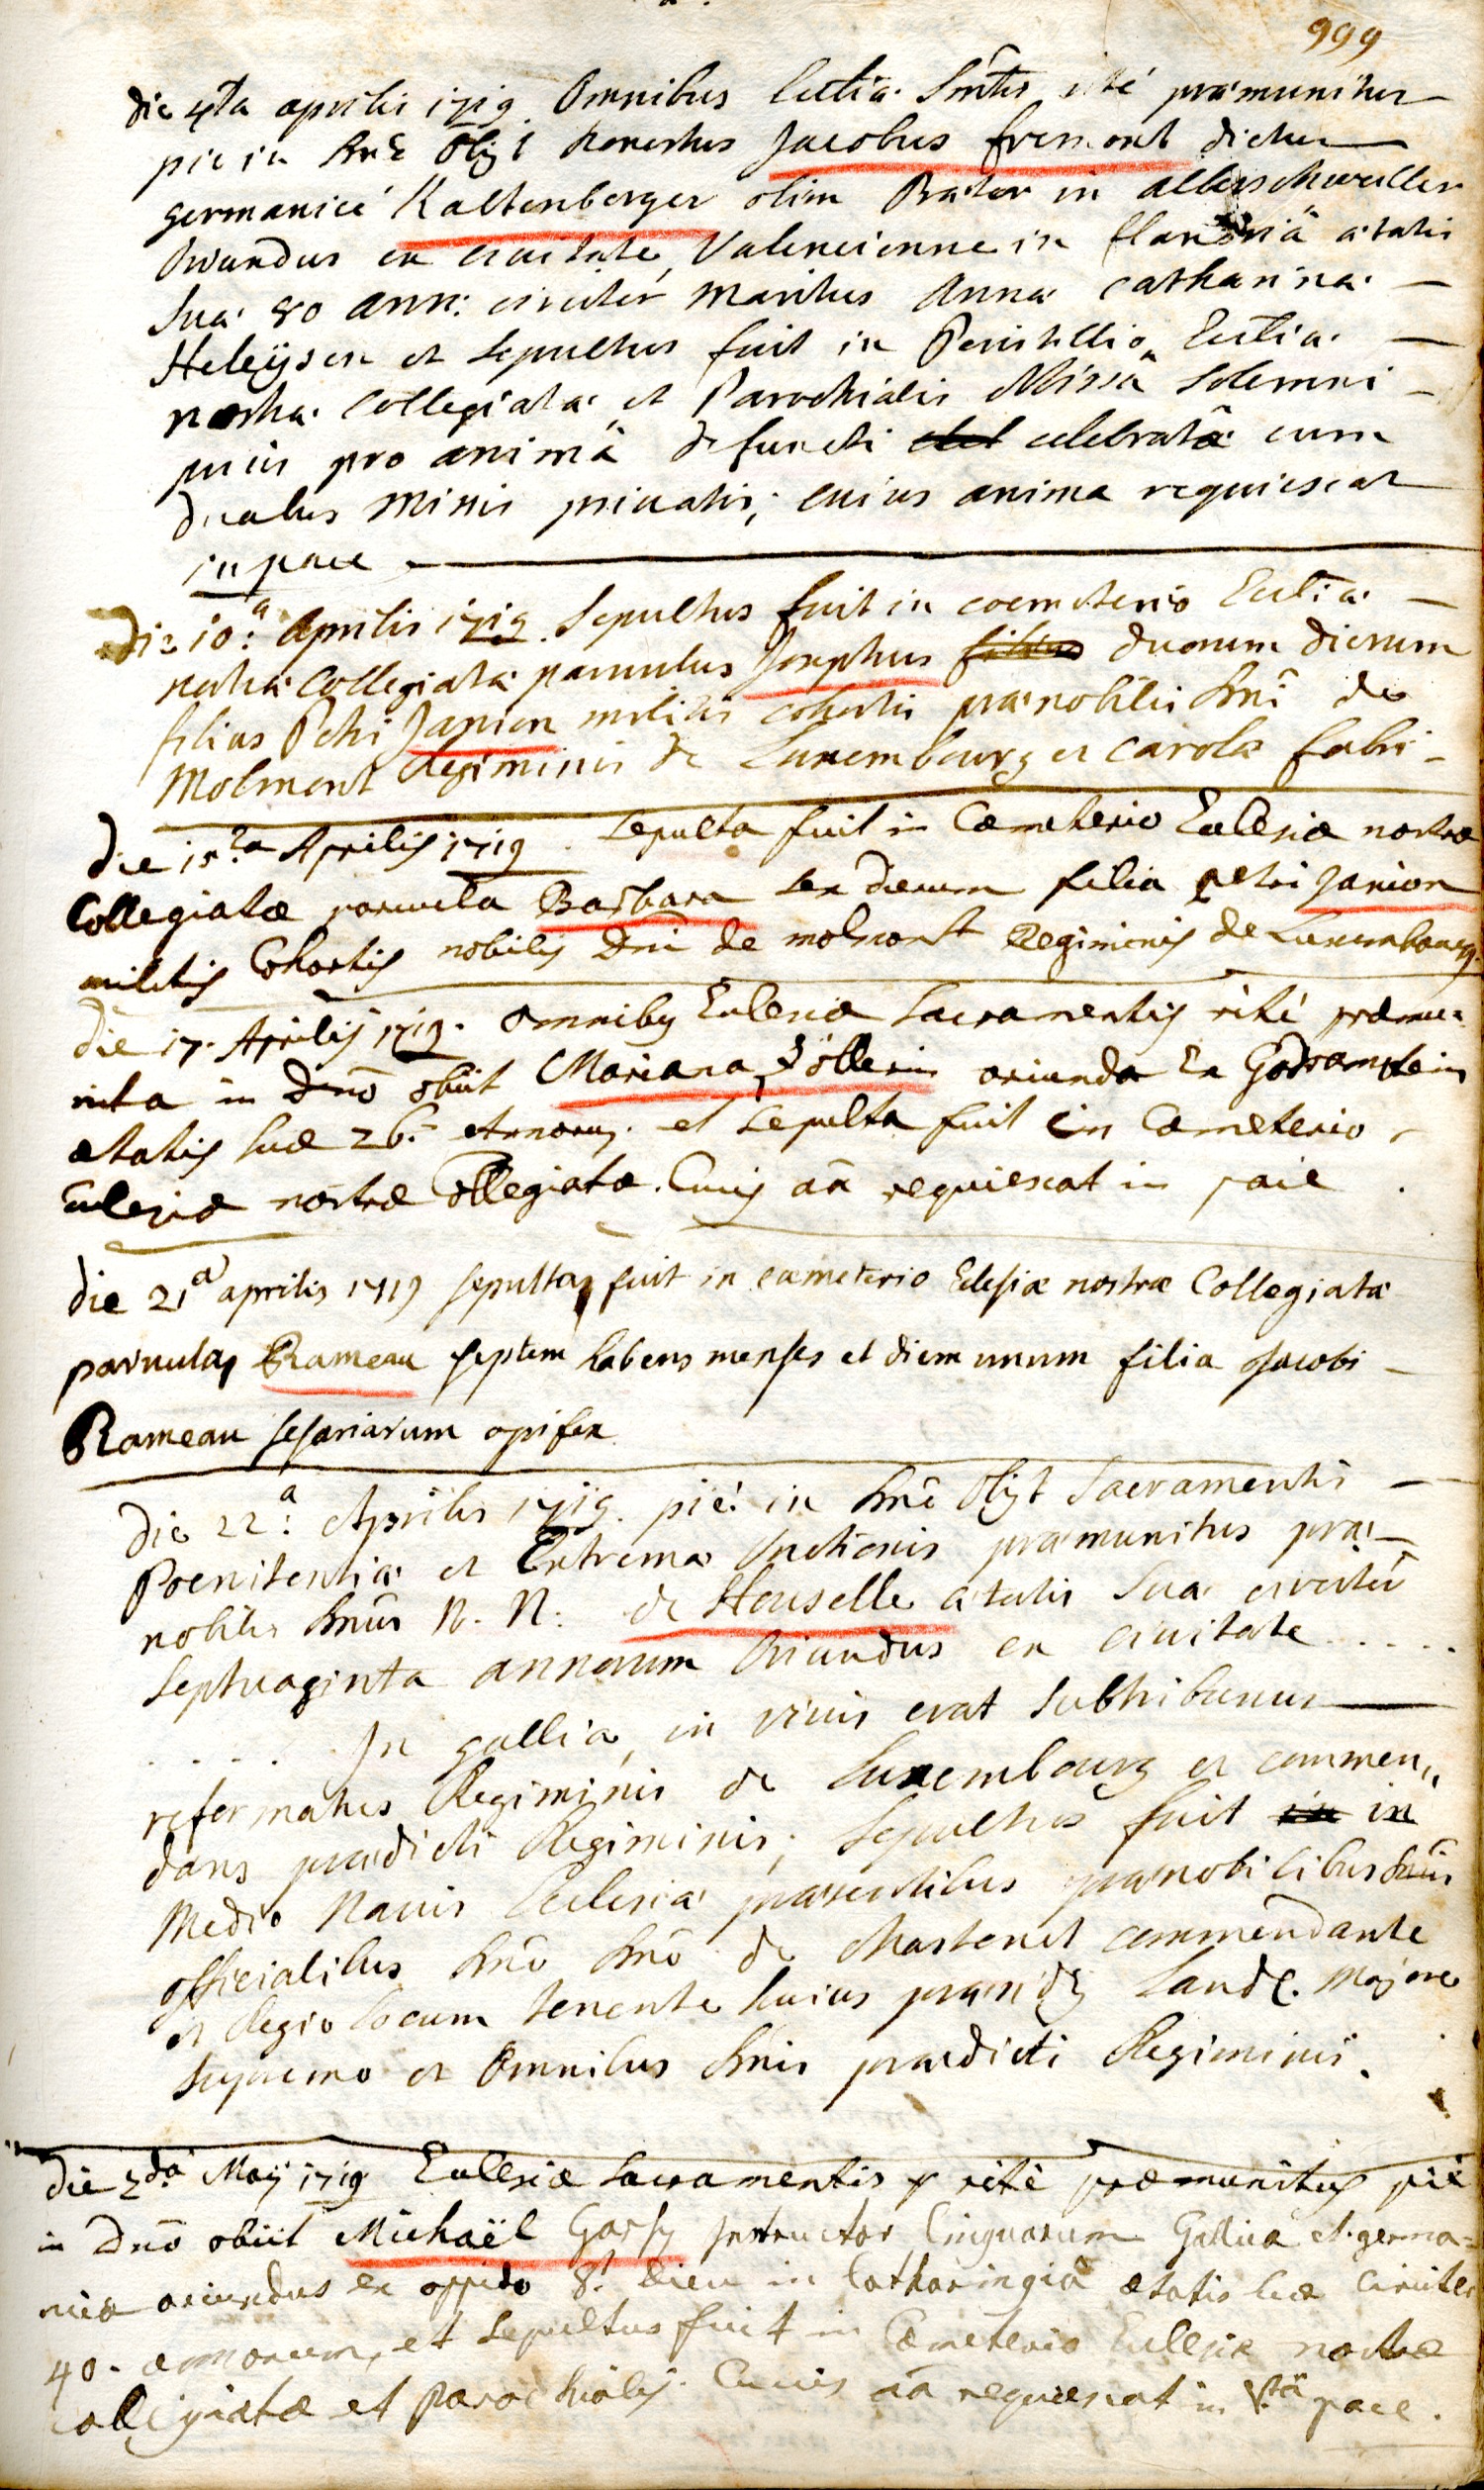 999
die 4ta aprilis 1719. Omnibus Eccliæ Smtis rité præmunitus
pie in Dnō Obijt honestus Jacobus fremont dictus
germanicé Kaltenberger olim Prætor in Alberschweiller
Oriundus ex ciuitate, Valencienne in flandriâ ætatis
Suæ 80 ann: circiter Maritus Annæ Catharinæ
Heleÿsen et Sepultus fuit in Peristillio Eccliæ
nostræ Collegiatæ et Parochialis Missâ Solemni
prius pro animâ defuncti celebratâ cum
duabus Missis priuatis, cuius anima requiescat
in pace
Die 10:a Aprilis 1719. Sepultus fuit in coemeterio Eccliæ
nostræ Collegiatæ paruulus Josephus filius duorum dierum
filius Petri Janion militis cohortis prænobilis Dni de
Molmont Regiminis de Luxembourg et Carolæ fabri
Die 15ta Aprilis 1719. Sepulta fuit in Cæmeterio Ecclesiæ nostræ
Collegiatæ paruula Barbara sex dierum filia petri Janion
militis Cohortis nobilis Dni de molmont Regiminis de Luxembourg.
Die 17. Aprilis 1719. Omnibus Ecclesiæ Sacramentis rité præmu=
nita in Dnō obiit Mariana Zöllerin oriunda Ex Godramstein
ætatis suæ 26. Annorum. et Sepulta fuit in Cæmeterio
Ecclesiæ nostræ Collegiatæ. Cuius aā requiescat in pace.
Die 21a aprilis 1719 sepulta fuit in cæmeterio Eclesiæ nostræ Collegiatæ
paruula Rameau septem habens menses et diem unum filia Jacobi
Rameau opifex
Die 22:a Aprilis 1719. pié in Dnō Obijt Sacramentis
Poenitentiæ et Extremæ Unctionis præmunitus præ-
nobilis Dnūs N. N. de Houselle ætatis Suæ circiter
Septuaginta annorum Oriundus ex ciuitate .....
..... In galliâ, in viuis erat Subtribunus
reformatus Regiminis de Luxembourg et commen,,
dans prædicti Regiminis; Sepultus fuit in in
Medio Nauis Ecclesiæ præsentibus prænobilibus Dnis
officialibus Dnō Dnō de Chastenet commendante
et Regio locum tenente huius præsidij Landæ. Majore
Supremo et Omnibus Dnis prædicti Regiminis.
Die 2da Maij 1719 Ecclesiæ Sacramentis rité præmunitus pié
in Dnō obiit Michaël Garsy Jnstructor linguarum Gallicæ et germa=
nicæ oriundus ex oppido St. Dieu in Lotharingiâ ætatis suæ circiter
40. annorum, et Sepultus fuit in Cæmeterio Ecclesiæ nostræ
collegiatæ et parochialis. Cuius aā requiescat in Stâ pace.